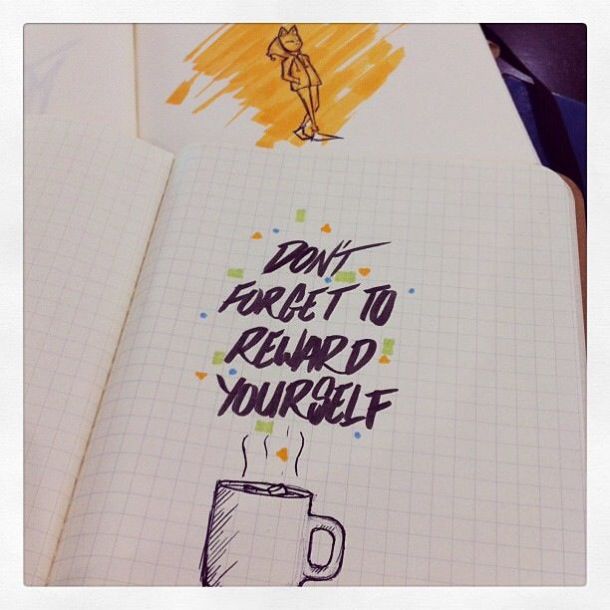 DON'T
FORGET TO
REWARD
YOURSELF